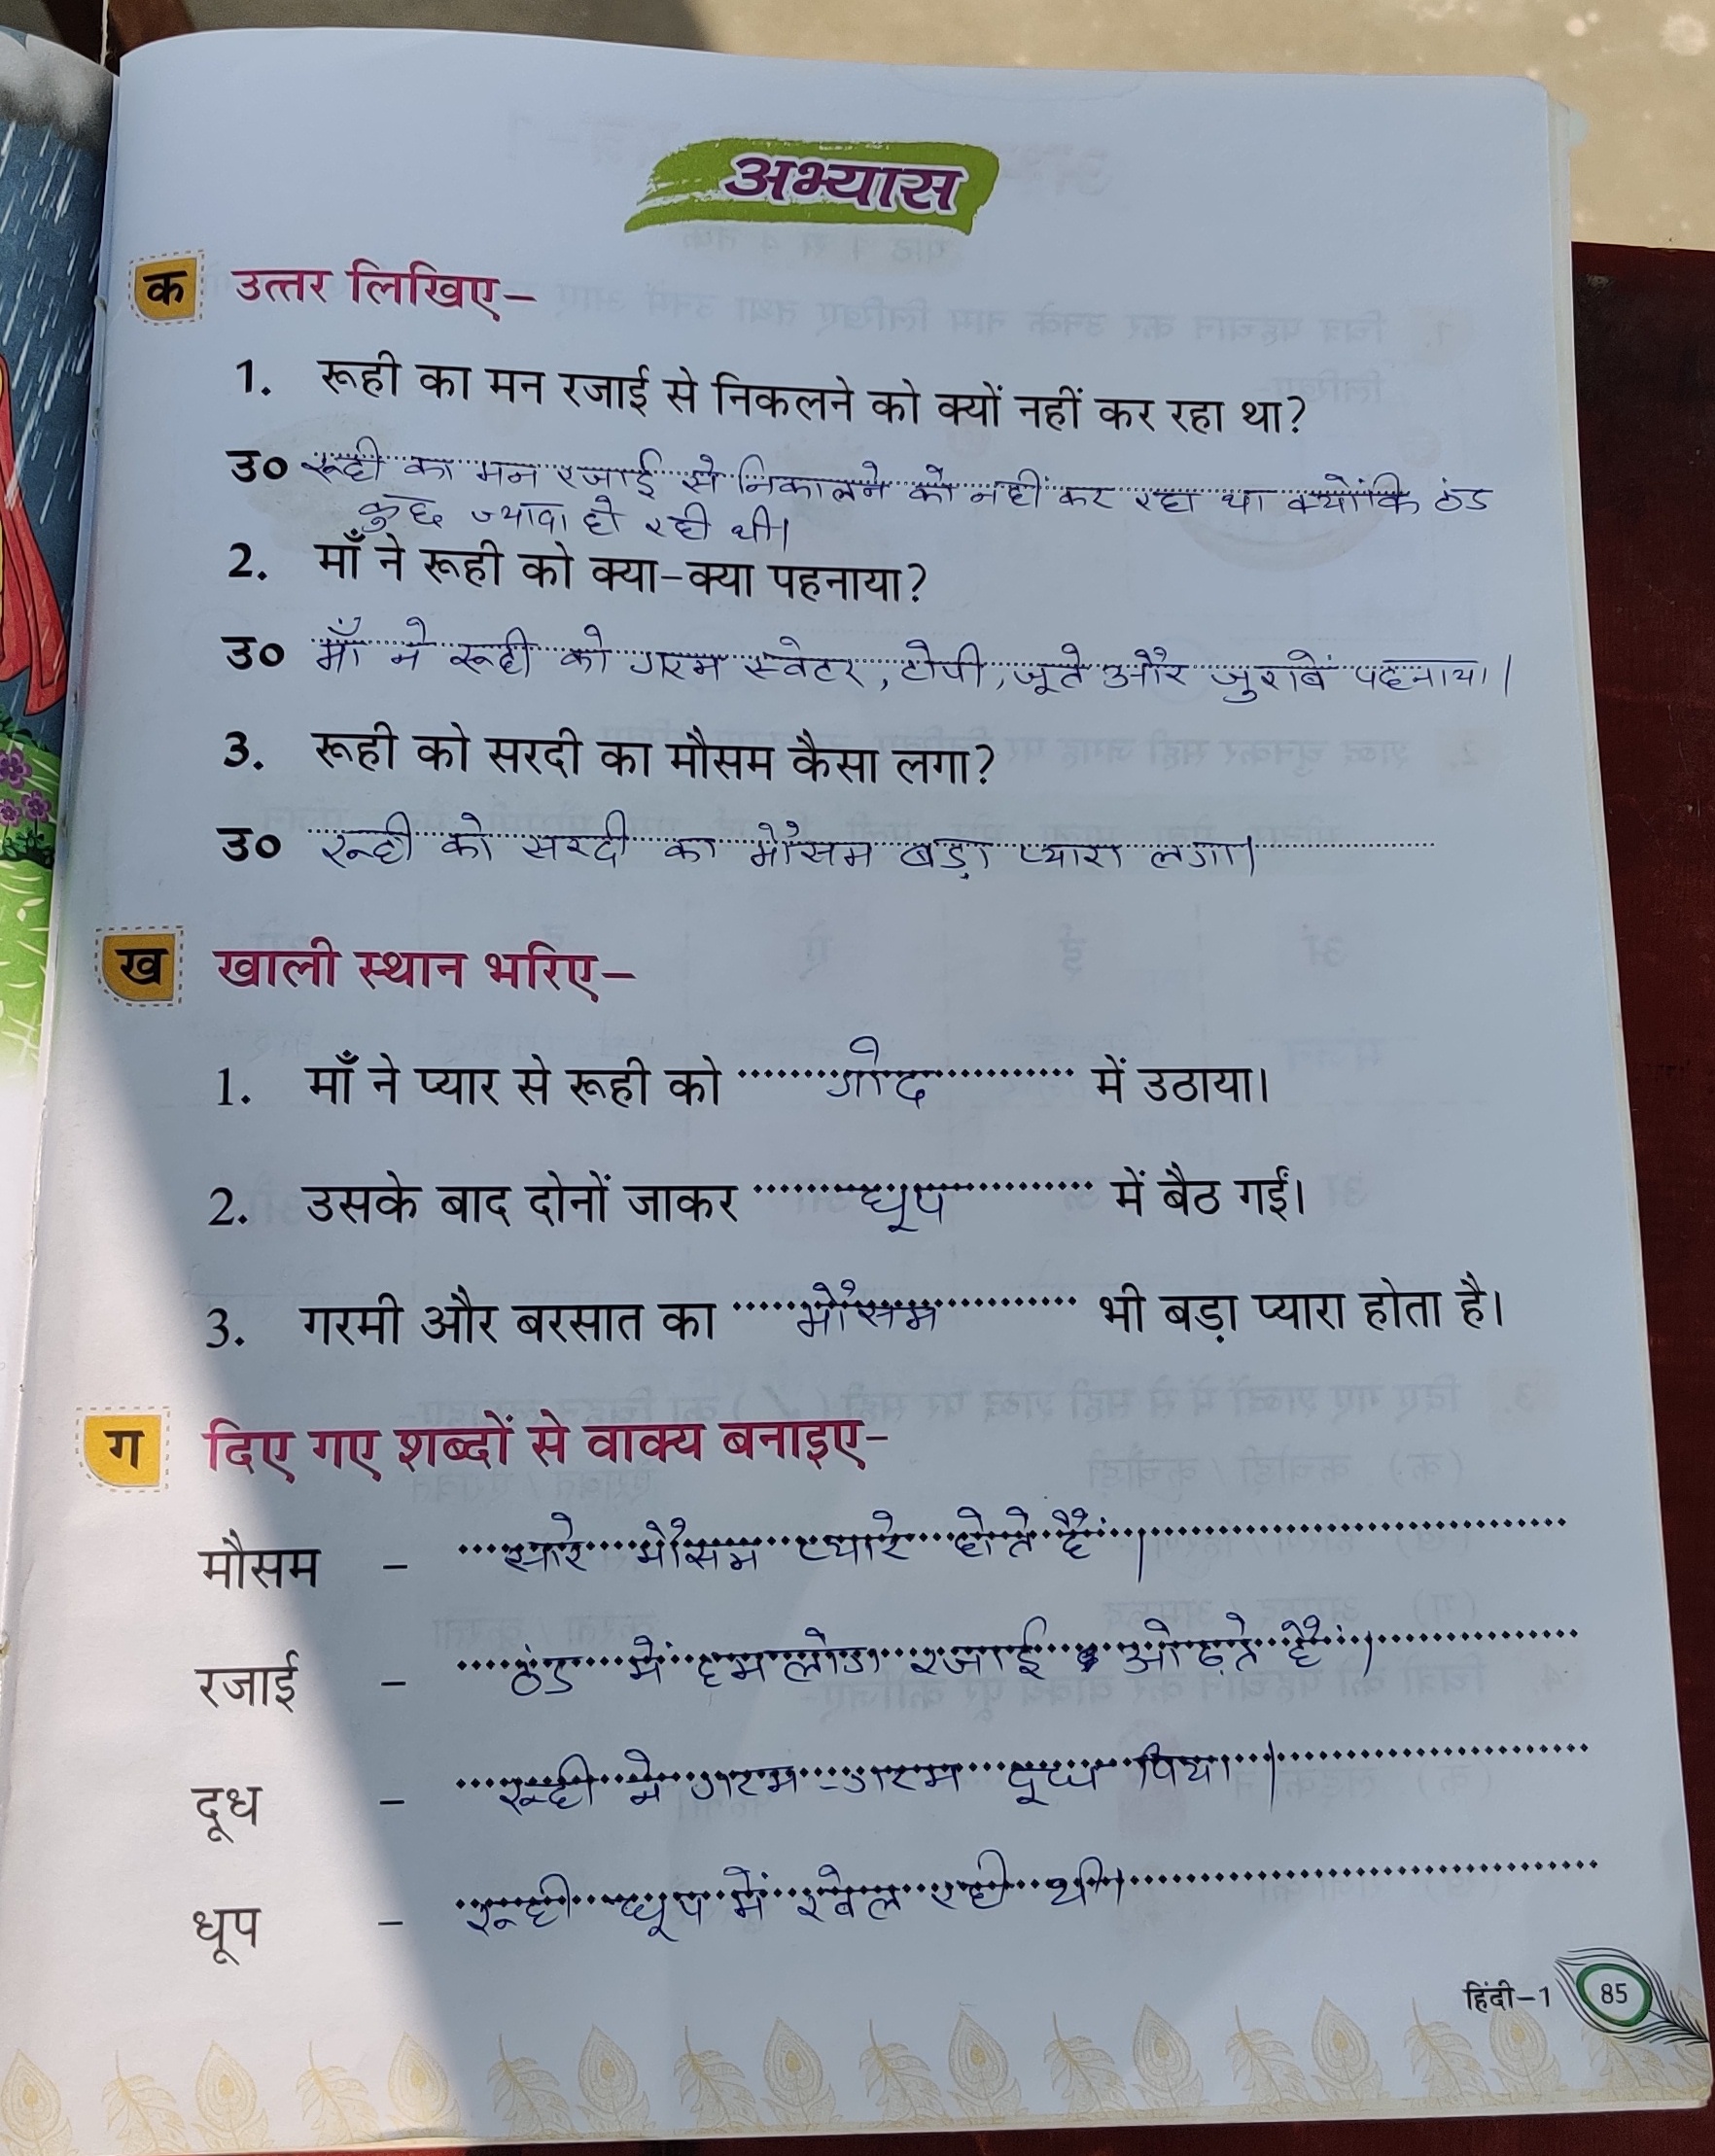 अभ्यास
क उत्तर लिखिए–
1. रूही का मन रजाई से निकलने को क्यों नहीं कर रहा था?
उ० रूही का मन रजाई से निकालने को नहीं कर रहा था क्योंकि ठंड
कुछ ज्यादा हो रही थी।
2. माँ ने रूही को क्या-क्या पहनाया?
उ० माँ ने रूही को गरम स्वेटर, टोपी, जूते और जुराबें पहनाया।
3. रूही को सरदी का मौसम कैसा लगा?
उ० रूही को सरदी का मौसम बड़ा प्यारा लगा।
ख खाली स्थान भरिए–
1. माँ ने प्यार से रूही को गोद में उठाया।
2. उसके बाद दोनों जाकर धूप में बैठ गईं।
3. गरमी और बरसात का मौसम भी बड़ा प्यारा होता है।
ग दिए गए शब्दों से वाक्य बनाइए-
मौसम – सारे मौसम प्यारे होते हैं।
रजाई – ठंड में हम लोग रजाई ओढ़ते हैं।
दूध – रूही ने गरम-गरम दूध पिया।
धूप – रूही धूप में खेल रही थी।
हिंदी–1 85